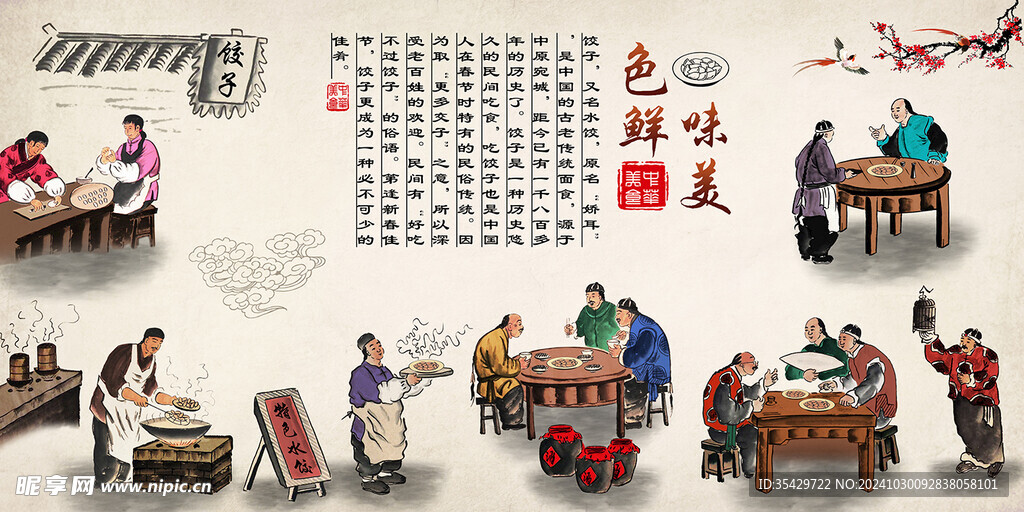 饺子
色鲜
味美
中华美食
饺子，又名水饺，原名“娇耳”
，是中国的古老传统面食，源于
中原宛城，距今已有一千八百多
年的历史了。饺子是一种历史悠
久的民间吃食，吃饺子也是中国
人在春节时特有的民俗传统。因
为取“更多交子”之意，所以深
受老百姓的欢迎。民间有“好吃
不过饺子”的俗语。第逢新春佳
节，饺子更成为一种必不可少的
佳肴。
中华美食
特色水饺
酒
酒
酒
昵享网 www.nipic.cn
ID:35429722 NO:20241030092838058101